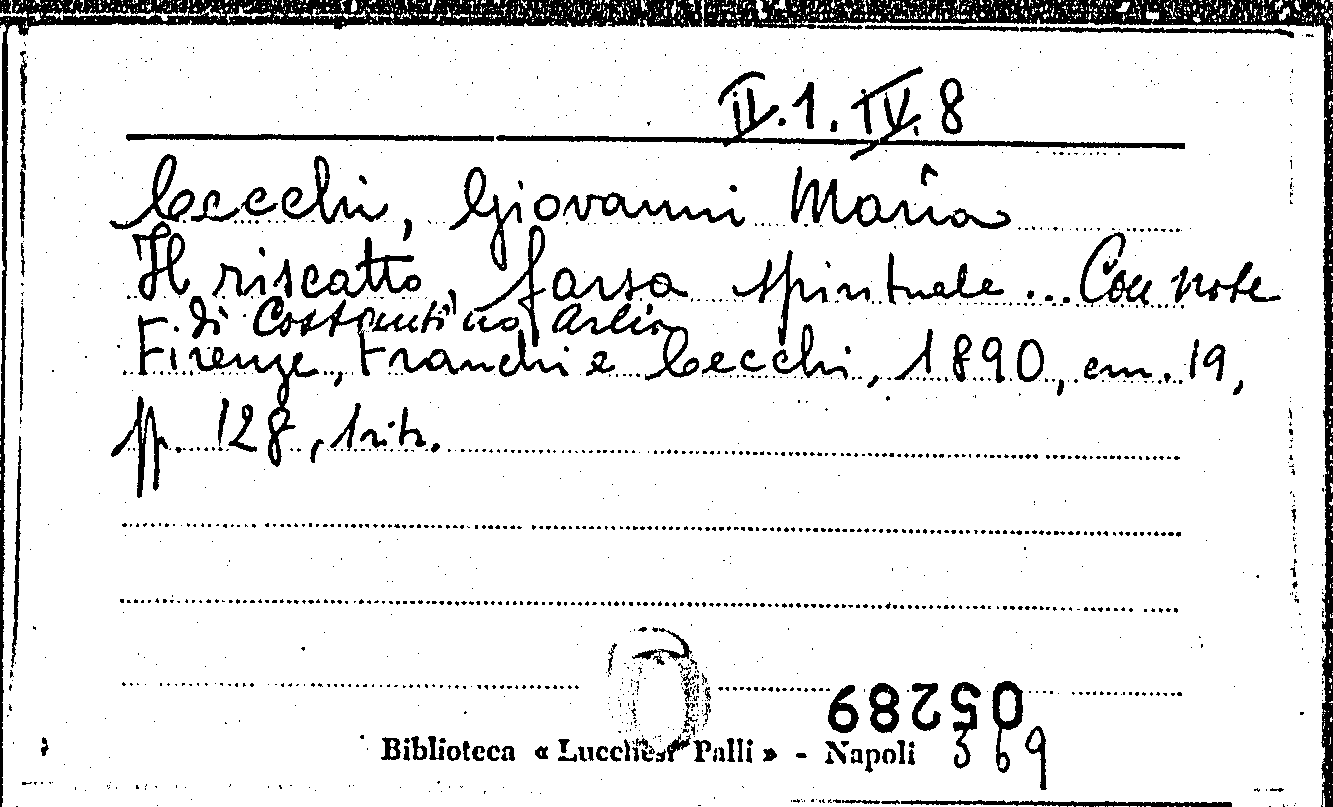 II.1.IV.8
Cecchi, Giovanni Maria
Il riscatto, farsa spirituale... Con note
di Costantino Arlia
Firenze, Franchi e Cecchi, 1890, cm. 19,
pp. 128, britz.
05289
Biblioteca « Lucchesi Palli » - Napoli 369